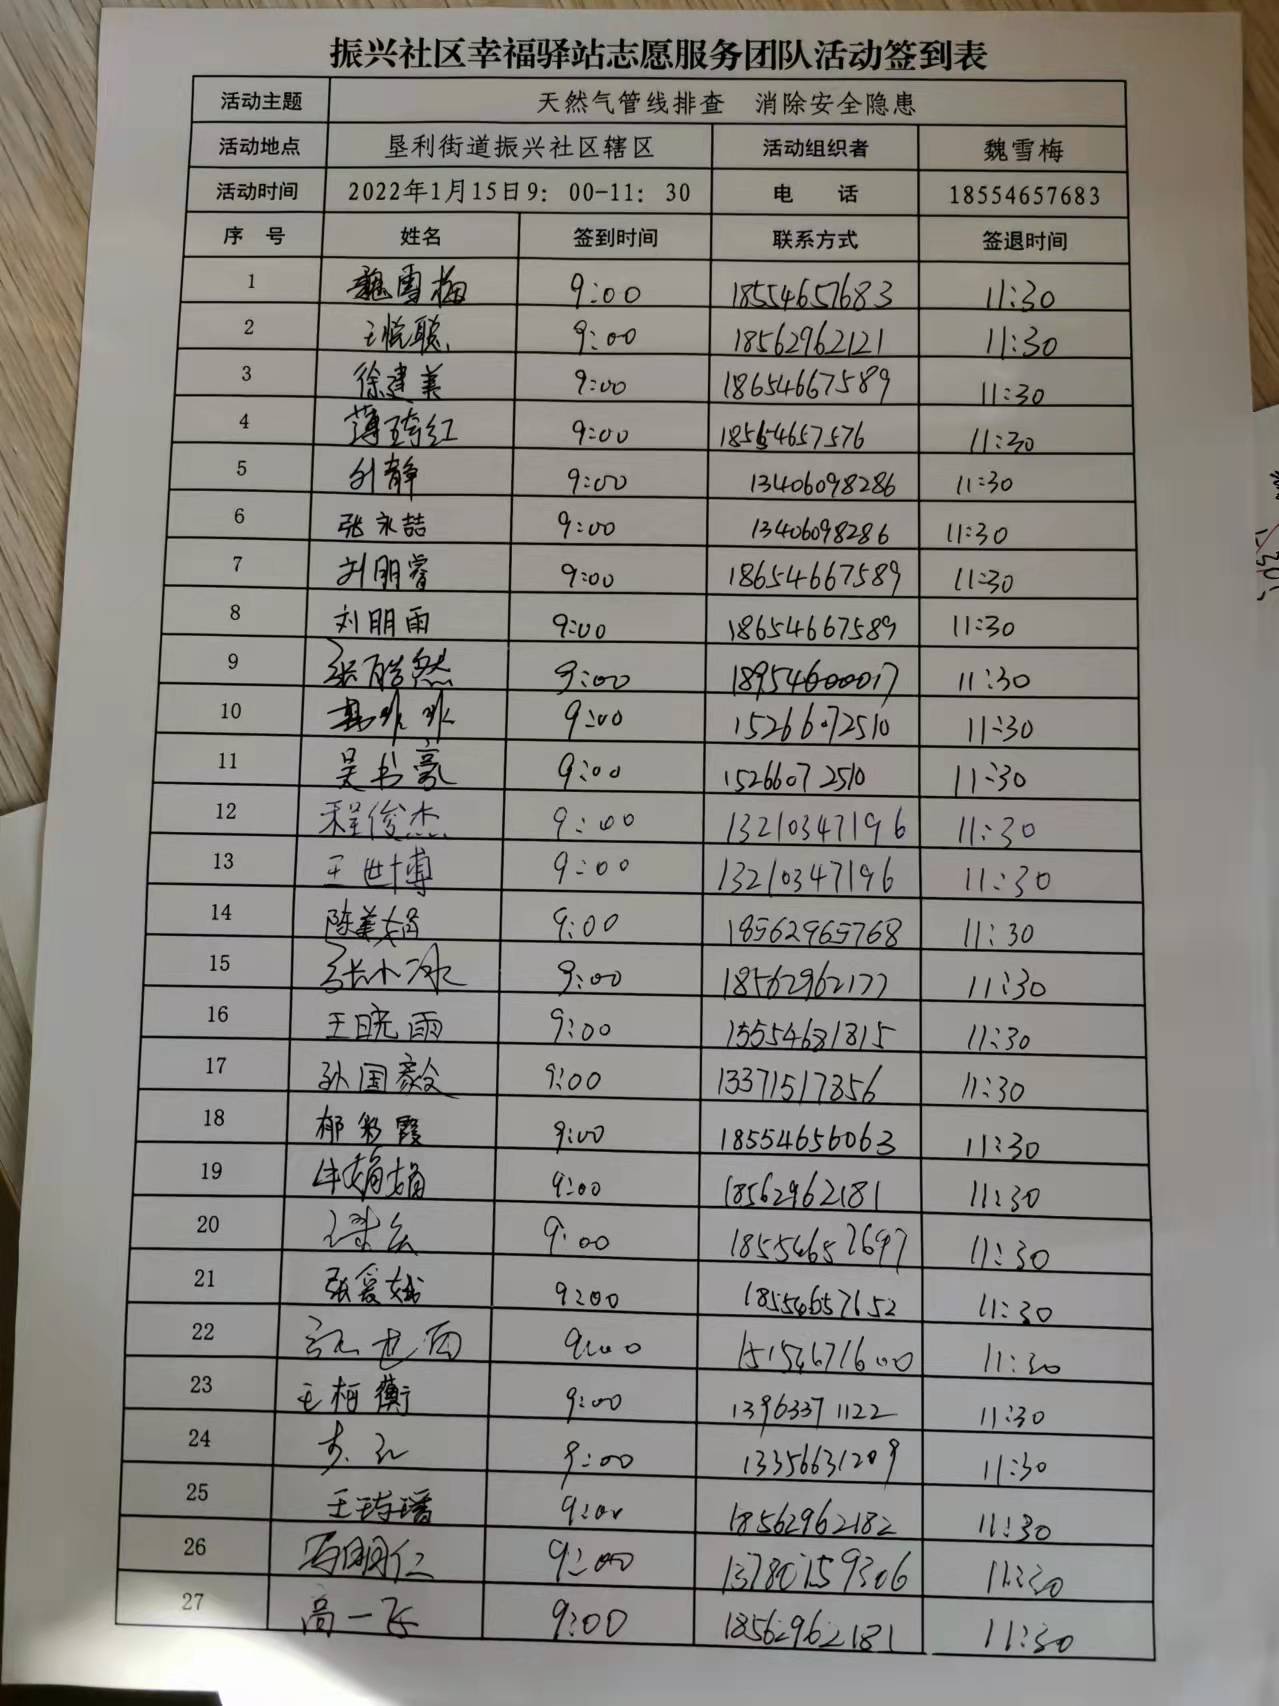 振兴社区幸福驿站志愿服务团队活动签到表
活动主题 天然气管线排查 消除安全隐患
活动地点 垦利街道振兴社区辖区 活动组织者 魏雪梅
活动时间 2022年1月15日9：00-11：30 电 话 18554657683
序 号 姓名 签到时间 联系方式 签退时间
1 魏雪梅 9:00 18554657683 11:30
2 王悦聪 9:00 18562962121 11:30
3 徐建美 9:00 18654667589 11:30
4 薄琦红 9:00 18554657576 11:30
5 刘静 9:00 13406098286 11:30
6 张永喆 9:00 13406098286 11:30
7 刘朋睿 9:00 18654667589 11:30
8 刘明雨 9:00 18654667589 11:30
9 张皓然 9:00 18954600017 11:30
10 9:00 15266072510 11:30
11 吴书豪 9:00 15266072510 11:30
12 程俊杰 9:00 13210347196 11:30
13 王世博 9:00 13210347196 11:30
14 陈美娟 9:00 18562965768 11:30
15 张小冰 9:00 18562962177 11:30
16 王晓雨 9:00 15554681815 11:30
17 孙国毅 9:00 13371517856 11:30
18 郁彩霞 9:00 18554656063 11:30
19 牛娟娟 9:00 18562962181 11:30
20 9:00 18554657697 11:30
21 张爱娥 9:00 18554657652 11:30
22 9:00 15154671600 11:30
23 王柯衡 9:00 13963371122 11:30
24 9:00 13356631209 11:30
25 9:00 18562962182 11:30
26 9:00 13780759306 11:30
27 高一飞 9:00 18562962181 11:30